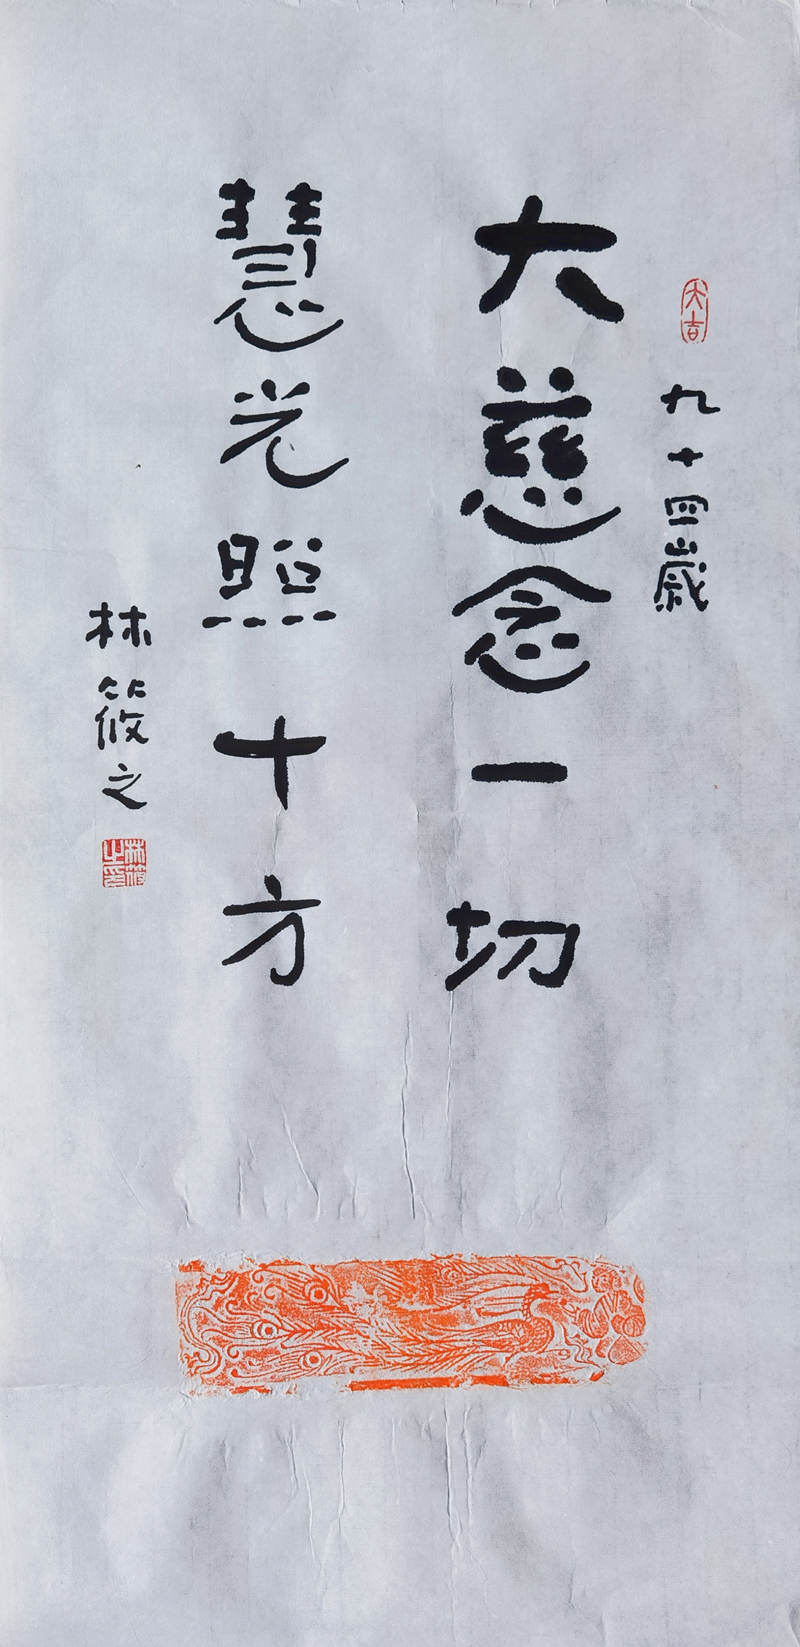 大吉
九十四歲
大慈念一切
慧光照十方
林筱之
林筱之印